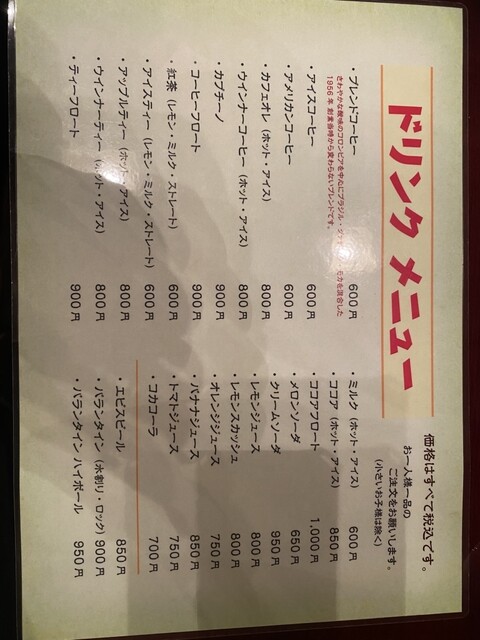 ドリンク メニュー
価格はすべて税込です。
お一人様一品の
ご注文をお願いします。
(小さいお子様は除く)
・ブレンドコーヒー 600円
さわやかな酸味のコロンビアを中心にブラジル・
モカを混合した
1956年 創業当時から変わらないブレンドです。
・アイスコーヒー 600円
・アメリカンコーヒー 600円
・カフェオレ(ホット・アイス) 800円
・ウインナーコーヒー(ホット・アイス) 800円
・カプチーノ 900円
・コーヒーフロート 900円
・紅茶(レモン・ミルク・ストレート) 600円
・アイスティー(レモン・ミルク・ストレート) 600円
・アップルティー(ホット・アイス) 800円
・ウインナーティー(ホット・アイス) 800円
・ティーフロート 900円
・ミルク(ホット・アイス) 600円
・ココア(ホット・アイス) 850円
・ココアフロート 1,000円
・メロンソーダ 650円
・クリームソーダ 950円
・レモンジュース 800円
・レモンスカッシュ 800円
・オレンジジュース 750円
・バナナジュース 850円
・トマトジュース 750円
・コカコーラ 700円
・エビスビール 850円
・バランタイン(水割り・ロック) 900円
・バランタイン ハイボール 950円